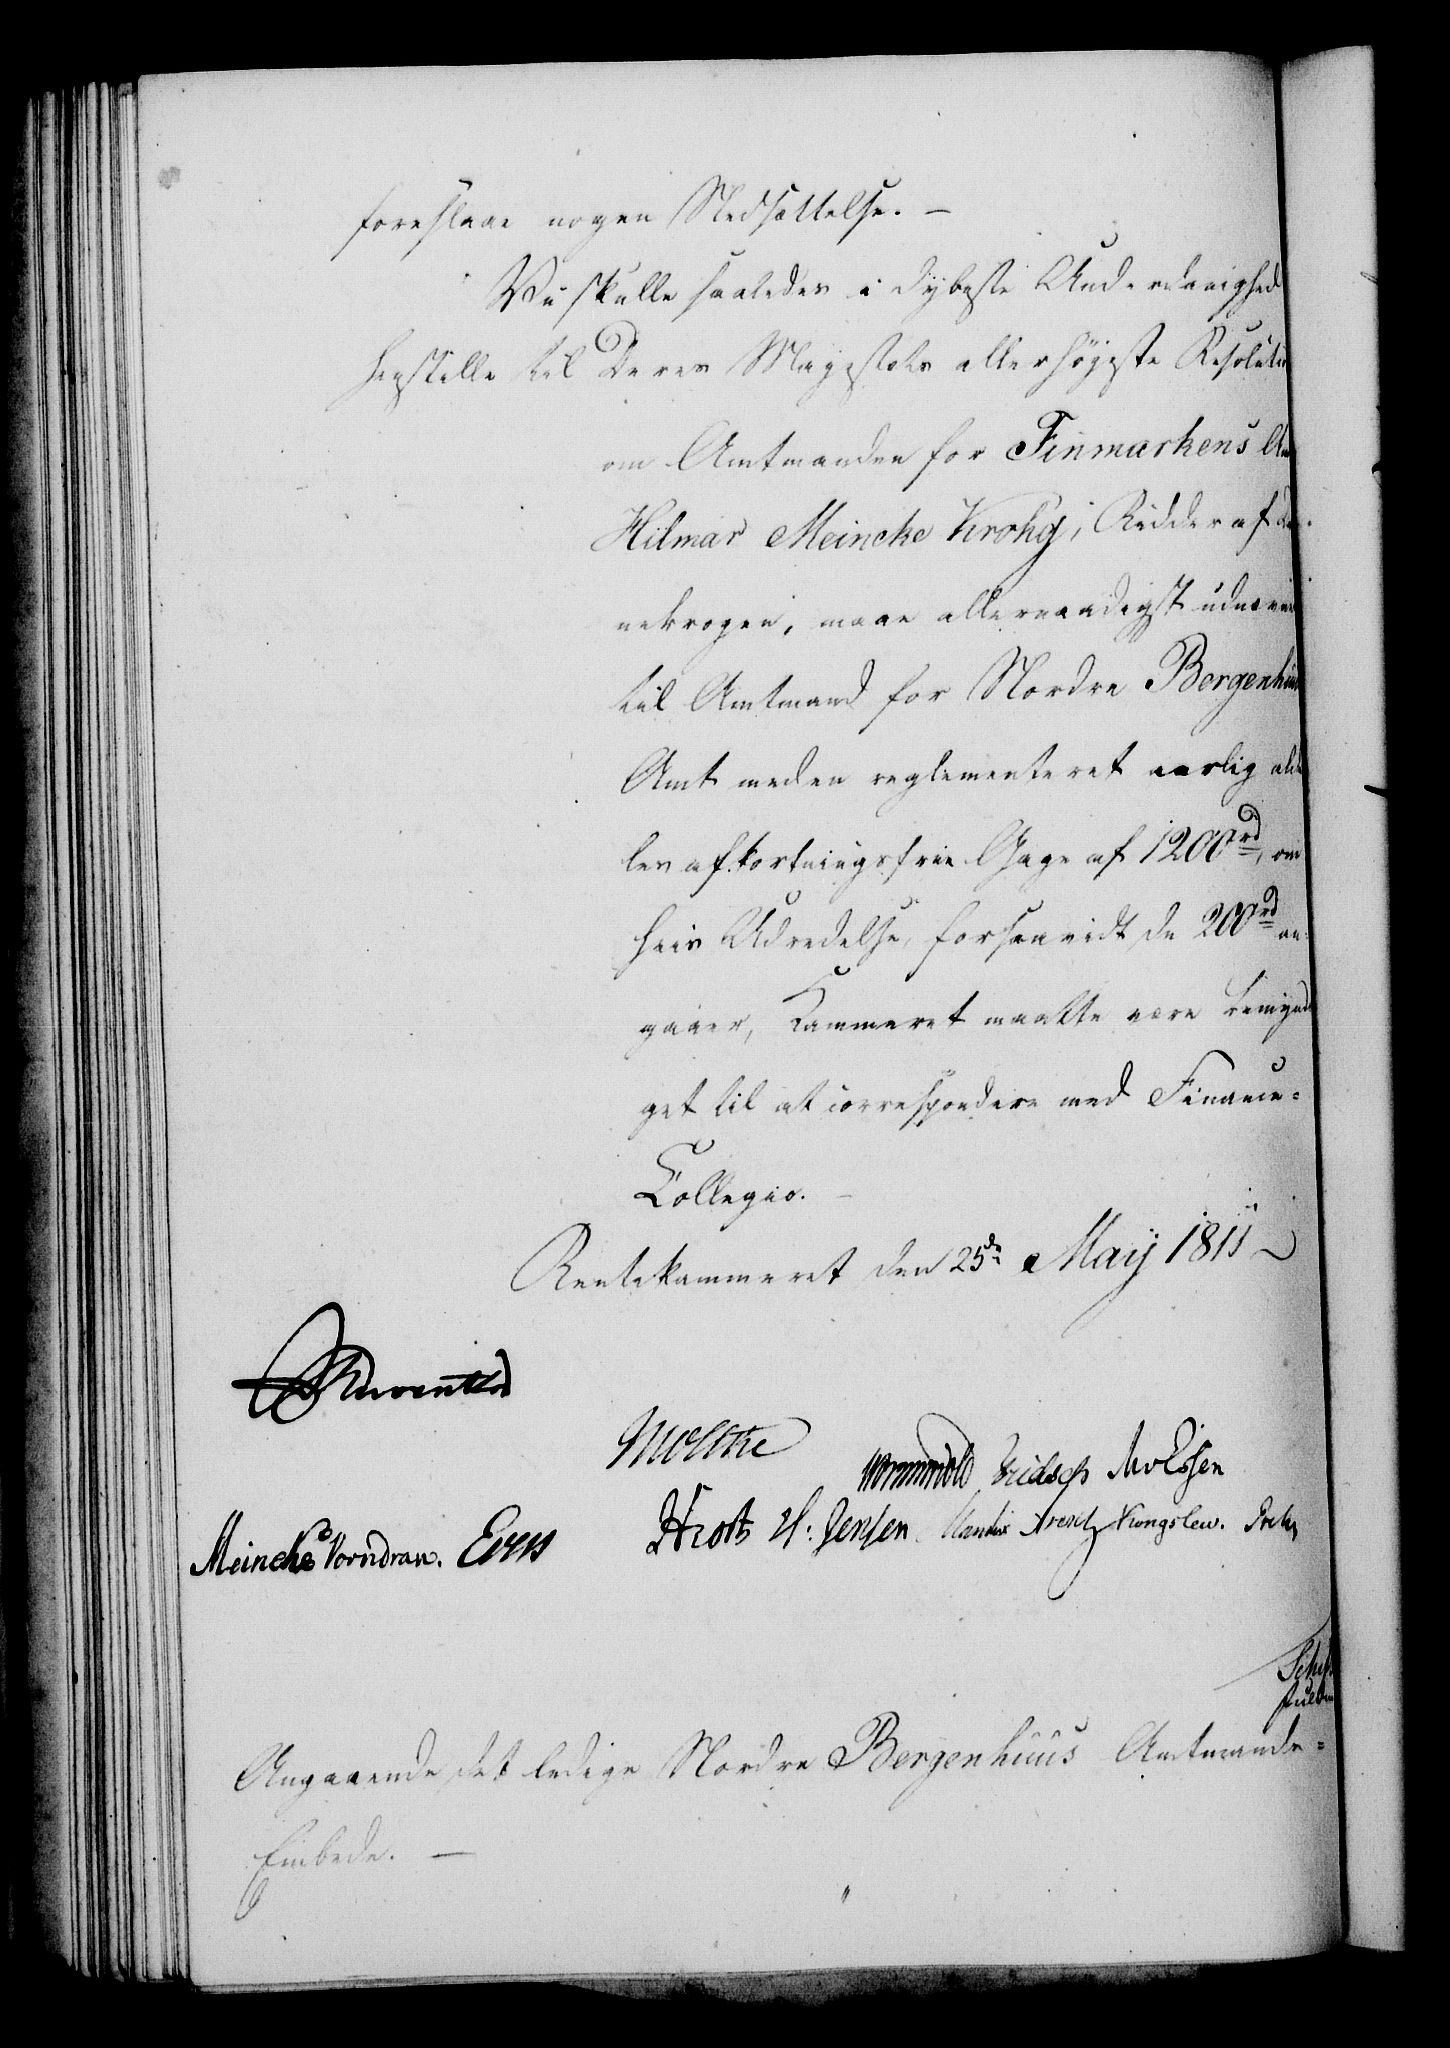 foreslaae nogen Nedsættelse. —
Vi skulle saaledes i dybeste Underdanighed
henstille til Deres Majestæts allerhøjeste Resolution
om Amtmanden for Finmarkens Am
Hilmar Meincke Krohg, Ridder af Dan-
nebrogen, maae allernaadigst udnævn
til Amtmand for Nordre Bergenhuus
Amt med en reglementeret aarlig alde
les afkortningsfrie Gage af 1200 rd, om
hvis Udredelse, forsaavidt de 200 rd an-
gaaer, Kammeret maatte være bemyndi
get til at correspondere med Finance-
Collegio. —
Rentekammeret den 25de Maij 1811
Reventlow
Moltke
Wormskiold Fridsch MvEssen
Meincke Vorndran. Evers Hrots H: Jensen Kongslew.
Angaaende det ledige Nordre Bergenhuus Amtmands-
Embede. —